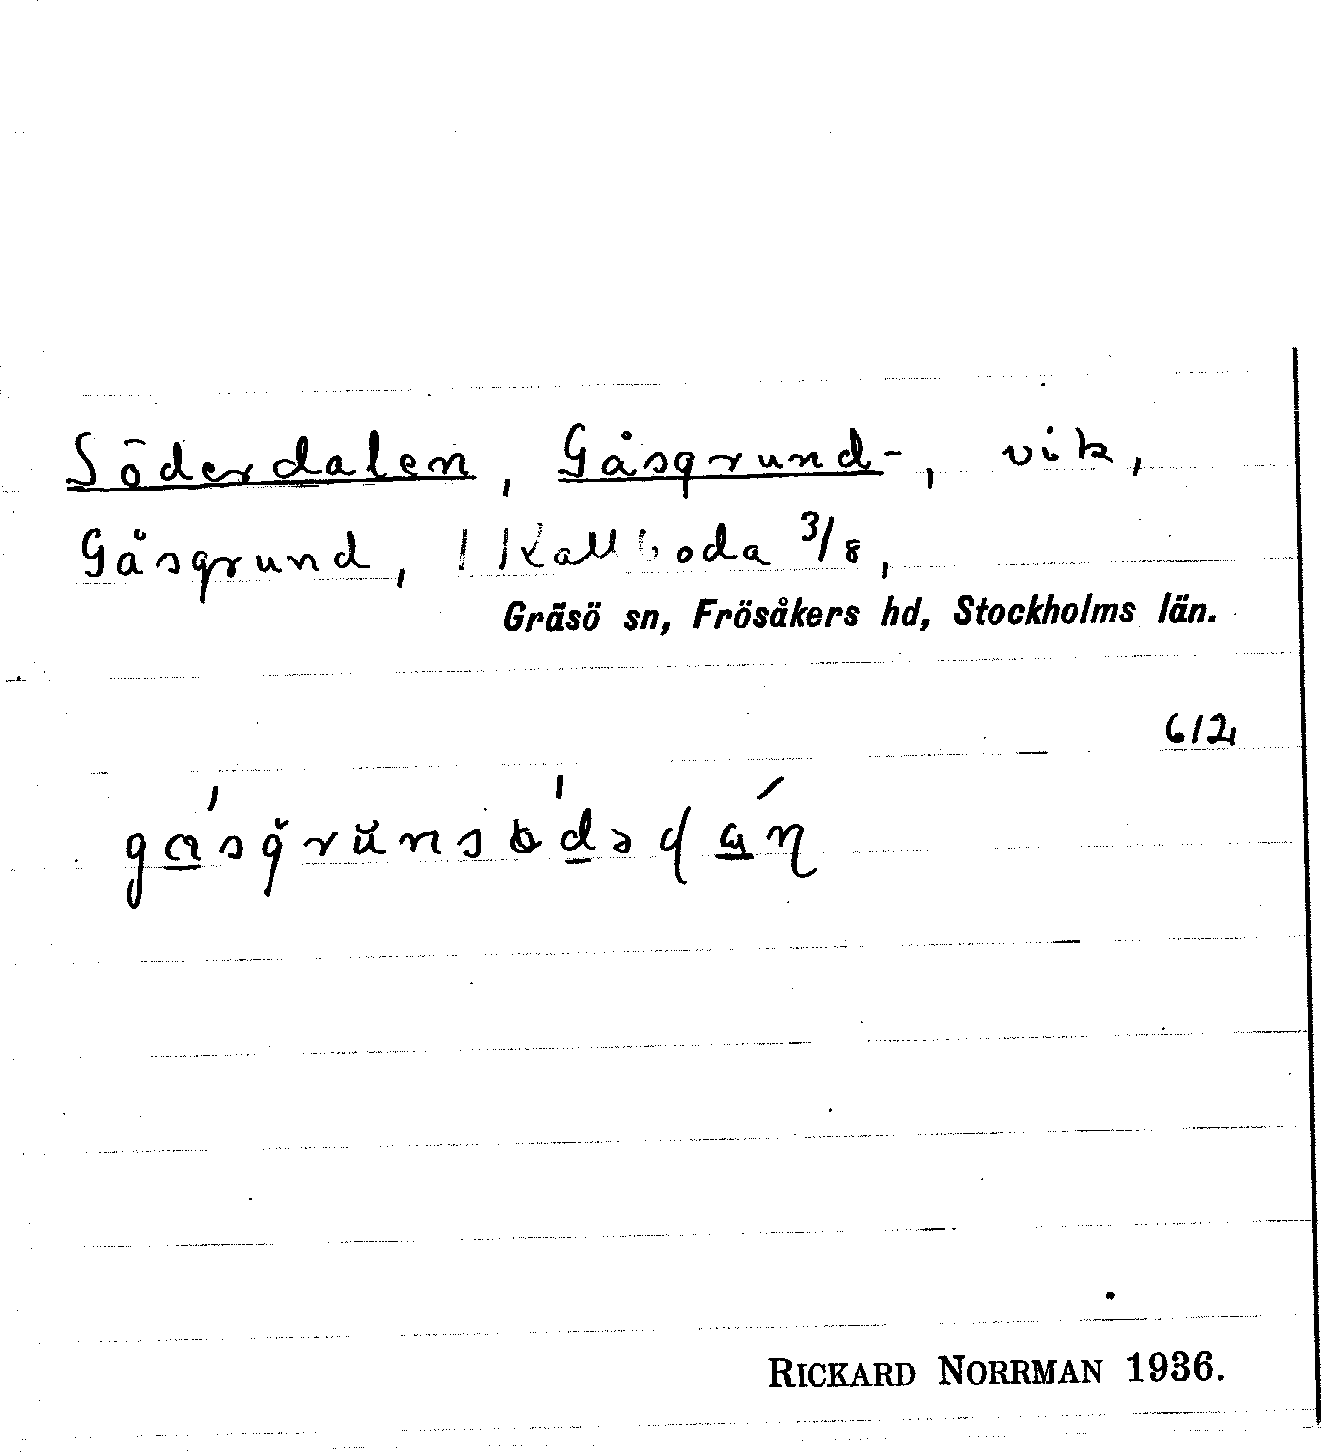 Söderdalen, Gåsgrund-, vik,
Gåsgrund, Kallboda 3/8,
Gräsö sn, Frösåkers hd, Stockholms län.
612
RICKARD NORRMAN 1936.